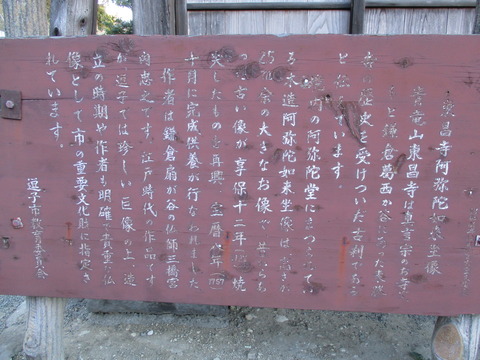 東昌寺阿弥陀如来坐像
青竜山東昌寺は真言宗
もと鎌倉葛西か谷にあった東勝
寺の歴史を受けついた古刹である
と伝 います。
の阿弥陀堂にまつら
木造阿弥陀如来坐像は高さ
余の大きなお像で、昔
古い像が享保十二年 焼
失したものを再興、宝暦 年(
十月に完成供養が行なわれました
作者は鎌倉扇が谷の仏師三橋宮
内忠之です。江戸時代の作品です
が逗子では珍しい巨像の上、造
立の時期や作者も明確で貴重な仏
像として市の重要文化財に指定さ
れています。
逗子市教育委員会